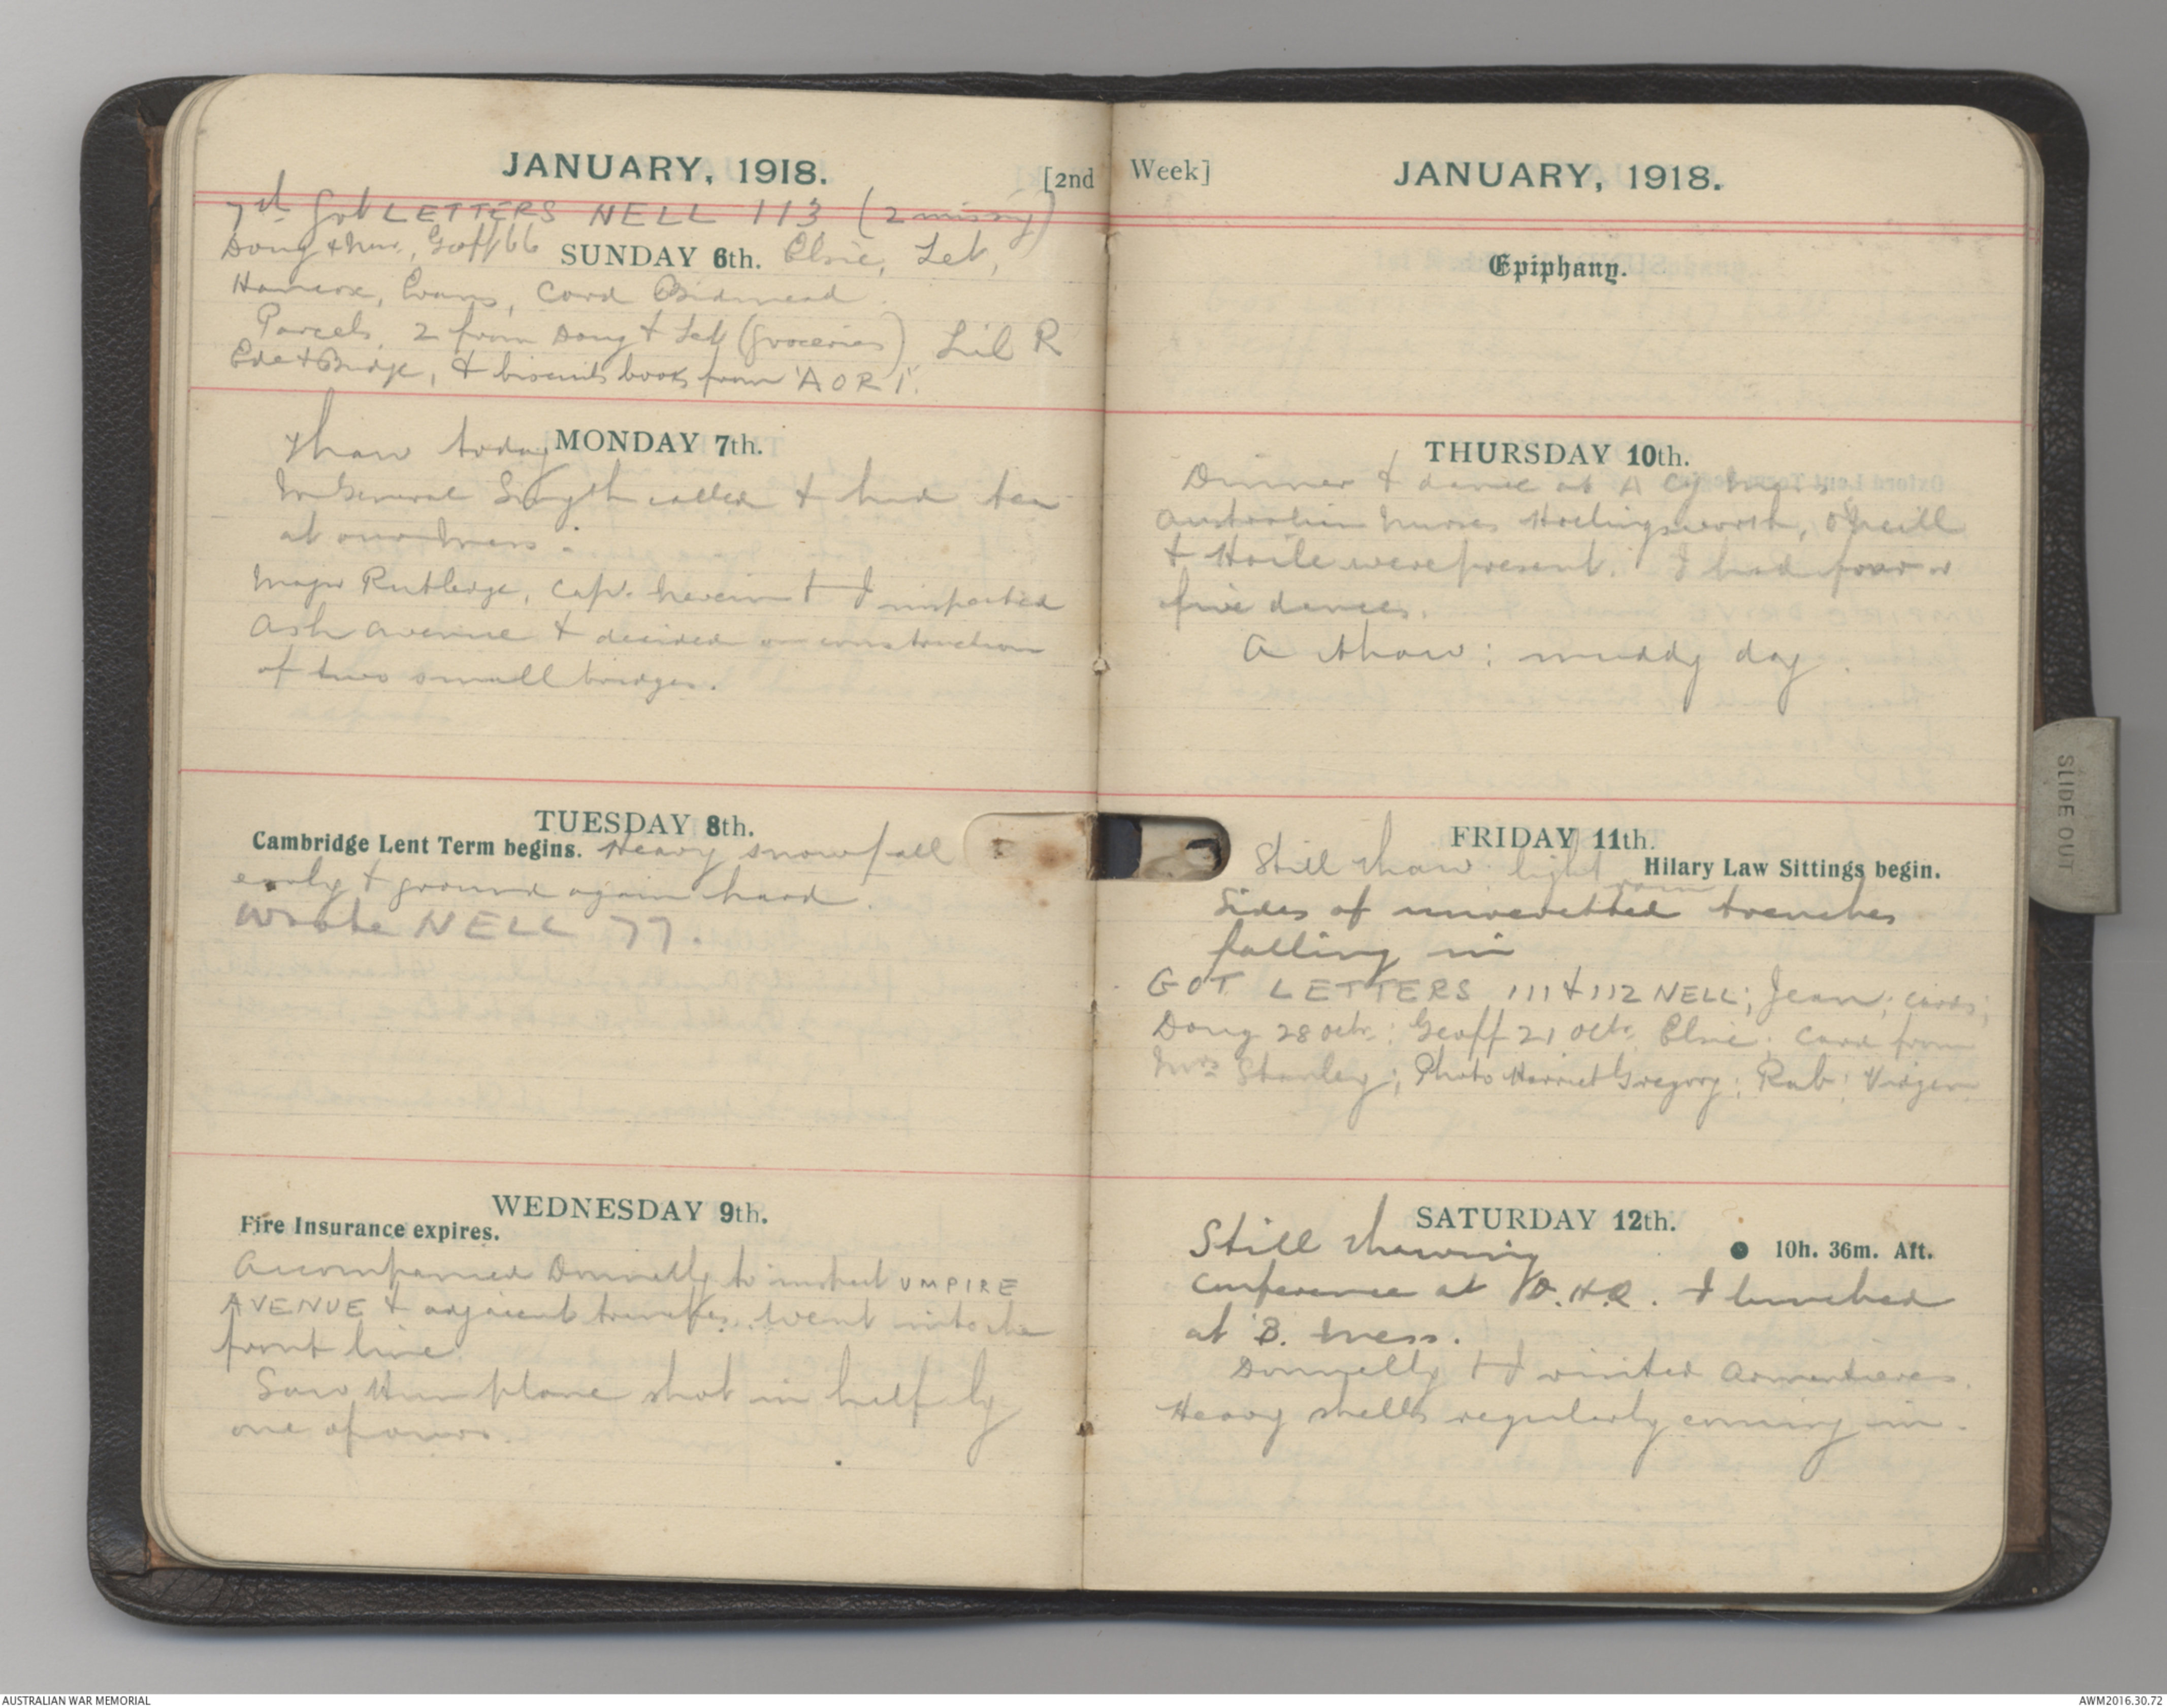 JANUARY, 1918. [2nd
7th Got LETTERS NELL 113 (2 missing)
Doug & Geoff 66 SUNDAY 6th. Elsie, Let,
Hancox, Evans, Card Bidmead
Parcels, 2 from Doug & Let (groceries) Lil R
Ede & Budge, & biscuits books from 'A O R I'.
Thaw today MONDAY 7th.
General Smyth called & had tea
at our Mess.
Major Rutledge, Capt. & I inspected
Ash Avenue & decided on construction
of two small bridges.
TUESDAY 8th.
Cambridge Lent Term begins. Heavy snowfall
early & ground again hard.
Wrote NELL 77.
WEDNESDAY 9th.
Fire Insurance expires.
Accompanied Donnelly to inspect UMPIRE
AVENUE & adjacent trenches. Went into the
front line.
Saw Hun plane shot in half by
one of ours.
Week] JANUARY, 1918.
Epiphany.
THURSDAY 10th.
Dinner & dance at A Coy Mess
Australian nurses Hollingsworth, O'Neill
& Hoile were present. I had four or
five dances.
A thaw: muddy day.
FRIDAY 11th.
Still thaw light rain Hilary Law Sittings begin.
Sides of unrevetted trenches
falling in
GOT LETTERS 111 & 112 NELL; Jean; cards;
Doug 28 Octr.; Geoff 21 Octr. Elsie; Card from
Mrs Stanley; Photo Harriet Gregory; Rab;
SATURDAY 12th.
Still thawing ● 10h. 36m. Aft.
Conference at D.H.Q. I lunched
at B. Mess.
Donnelly & I visited Armentieres.
Heavy shells regularly coming in.
SLIDE OUT
AUSTRALIAN WAR MEMORIAL AWM2016.30.72